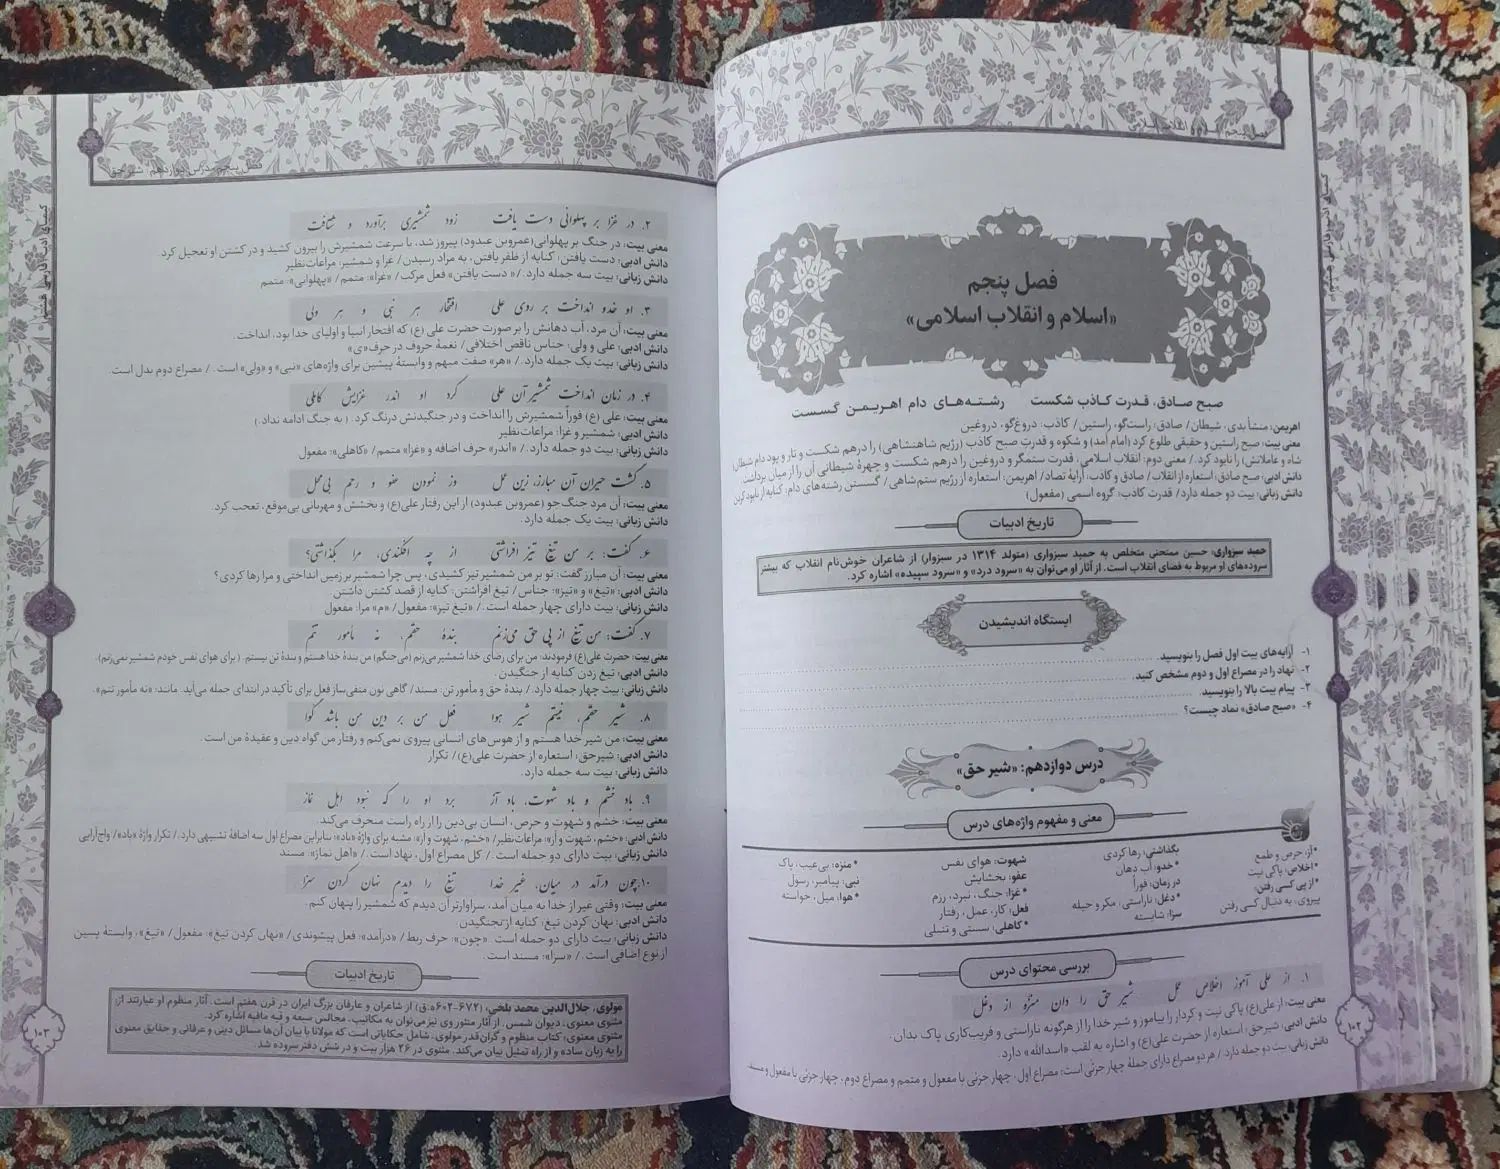 فصل پنجم
«اسلام و انقلاب اسلامی»
صبح صادق، قدرت کاذب شکست رشته‌های دام اهریمن گسست
اهریمن: منشأ بدی، شیطان/ صادق: راست‌گو، راستین/ کاذب: دروغ‌گو، دروغین
معنی بیت: صبح راستین و حقیقی طلوع کرد (امام آمد) و شکوه و قدرت صبح کاذب (رژیم شاهنشاهی) را درهم شکست و تار و پود دام شیطان (
شاه و عاملانش) را نابود کرد. / معنی دوم: انقلاب اسلامی، قدرت ستمگر و دروغین را درهم شکست و چهرهٔ شیطانی آن را از میان برداشت.
دانش ادبی: صبح صادق: استعاره از انقلاب/ صادق و کاذب: آرایهٔ تضاد/ اهریمن: استعاره از رژیم ستم‌شاهی/ گسستن رشته‌های دام: کنایه از نابود کردن
دانش زبانی: بیت دو جمله دارد/ قدرت کاذب: گروه اسمی (مفعول)
تاریخ ادبیات
حمید سبزواری: حسین ممتحنی متخلص به حمید سبزواری (متولد ۱۳۱۴ در سبزوار) از شاعران خوش‌نام انقلاب که بیشتر
سروده‌های او مربوط به فضای انقلاب است. از آثار او می‌توان به «سرود درد» و «سرود سپیده» اشاره کرد.
ایستگاه اندیشیدن
۱- آرایه‌های بیت اول فصل را بنویسید.
۲- نهاد را در مصراع اول و دوم مشخص کنید.
۳- پیام بیت بالا را بنویسید.
۴- «صبح صادق» نماد چیست؟
درس دوازدهم: «شیر حق»
معنی و مفهوم واژه‌های درس
*آز: حرص و طمع
*اخلاص: پاکی نیت
*از پی کسی رفتن:
پیروی، به دنبال کسی رفتن
بگذاشتی: رها کردی
*خدو: آب دهان
در زمان: فوراً
*دغل: ناراستی، مکر و حیله
سزا: شایسته
شهوت: هوای نفس
عفو: بخشایش
*غزا: جنگ، نبرد، رزم
فعل: کار، عمل، رفتار
*کاهلی: سستی و تنبلی
*منزه: بی‌عیب، پاک
نبی: پیامبر، رسول
*هوا: میل، خواسته
بررسی محتوای درس
۱. از علی آموز اخلاص عمل شیر حق را دان منزّه از دغل
معنی بیت: از علی(ع) پاکی نیت و کردار را بیاموز و شیر خدا را از هرگونه ناراستی و فریب‌کاری پاک بدان.
دانش ادبی: شیرحق: استعاره از حضرت علی(ع) و اشاره به لقب «اسدالله» دارد.
دانش زبانی: بیت دو جمله دارد. / هر دو مصراع دارای جملهٔ چهار جزئی است: مصراع اول، چهار جزئی با مفعول و متمم و مصراع دوم، چهار جزئی با مفعول و مسند.
۱۰۲
فصل پنجم درس دوازدهم: شیر حق
۲. در غزا بر پهلوانی دست یافت زود شمشیری برآورد و شتافت
معنی بیت: در جنگ بر پهلوانی(عمروبن عبدود) پیروز شد، با سرعت شمشیرش را بیرون کشید و در کشتن او تعجیل کرد.
دانش ادبی: دست یافتن، کنایه از ظفر یافتن، به مراد رسیدن/ غزا و شمشیر: مراعات‌نظیر
دانش زبانی: بیت سه جمله دارد./ «دست یافتن» فعل مرکب/ «غزا»: متمم / «پهلوانی»: متمم
۳. او خدو انداخت بر روی علی افتخار هر نبی و هر ولی
معنی بیت: آن مرد، آب دهانش را بر صورت حضرت علی(ع) که افتخار انبیا و اولیای خدا بود، انداخت.
دانش ادبی: علی و ولی: جناس ناقص اختلافی/ نغمهٔ حروف در حرف«ی»
دانش زبانی: بیت یک جمله دارد. / «هر» صفت مبهم و وابستهٔ پیشین برای واژه‌های «نبی» و «ولی» است. / مصراع دوم بدل است.
۴. در زمان انداخت شمشیر آن علی کرد او اندر غزایش کاهلی
معنی بیت: علی (ع) فوراً شمشیرش را انداخت و در جنگیدنش درنگ کرد. ( به جنگ ادامه نداد.)
دانش ادبی: شمشیر و غزا: مراعات‌نظیر
دانش زبانی: بیت دو جمله دارد./ «اندر» حرف اضافه و «غزا» متمم/ «کاهلی»: مفعول
۵. گشت حیران آن مبارز، زین عمل وز نمودن عفو و رحم بی‌محل
معنی بیت: آن مرد جنگ‌جو (عمروبن عبدود) از این رفتار علی(ع) و بخشش و مهربانی بی‌موقع، تعجب کرد.
دانش زبانی: بیت یک جمله دارد.
۶. گفت: بر من تیغ تیز افراشتی از چه افکندی، مرا بگذاشتی؟
معنی بیت: آن مبارز گفت: تو بر من شمشیر تیز کشیدی، پس چرا شمشیر بر زمین انداختی و مرا رها کردی؟
دانش ادبی: «تیغ» و «تیز»: جناس/ تیغ افراشتن: کنایه از قصد کشتن داشتن
دانش زبانی: بیت دارای چهار جمله است. / «تیغ تیز»: مفعول/ «م» مرا: مفعول
۷. گفت: من تیغ از پی حق می‌زنم بندهٔ حقم، نه مأمور تنم
معنی بیت: حضرت علی(ع) فرمودند: من برای رضای خدا شمشیر می‌زنم (می‌جنگم) من بندهٔ خدا هستم و بندهٔ تن نیستم. ( برای هوای نفس خودم شمشیر نمی‌زنم).
دانش ادبی: تیغ زدن کنایه از جنگیدن.
دانش زبانی: بیت چهار جمله دارد. / بندهٔ حق و مأمور تن: مسند/ گاهی نون منفی‌ساز فعل برای تأکید در ابتدای جمله می‌آید. مانند: «نه مأمور تنم».
۸. شیر حقم، نیستم شیر هوا فعل من بر دین من باشد گوا
معنی بیت: من شیر خدا هستم و از هوس‌های انسانی پیروی نمی‌کنم و رفتار من گواه دین و عقیدهٔ من است.
دانش ادبی: شیرحق: استعاره از حضرت علی(ع)/ تکرار
دانش زبانی: بیت سه جمله دارد.
۹. باد خشم و باد شهوت، باد آز برد او را که نبود اهل نماز
معنی بیت: خشم و شهوت و حرص، انسان بی‌دین را از راه راست منحرف می‌کند.
دانش ادبی: «خشم، شهوت و آز»: مراعات‌نظیر/ «خشم، شهوت و آز»: مشبه برای واژهٔ «باد»؛ بنابراین مصراع اول سه اضافهٔ تشبیهی دارد./ تکرار واژهٔ «باد»/ واج‌آرایی
دانش زبانی: بیت دارای دو جمله است./ کل مصراع اول، نهاد است./ «اهل نماز»: مسند
۱۰. چون درآمد در میان، غیر خدا تیغ را دیدم نهان کردن سزا
معنی بیت: وقتی غیر از خدا به میان آمد، سزاوارتر آن دیدم که شمشیر را پنهان کنم.
دانش ادبی: نهان کردن تیغ: کنایه از نجنگیدن.
دانش زبانی: بیت دارای دو جمله است. «چون»: حرف ربط/ «درآمد»: فعل پیشوندی/ «نهان کردن تیغ»: مفعول/ «تیغ»، وابستهٔ پسین
از نوع اضافی است. / «سزا»: مسند است.
تاریخ ادبیات
مولوی، جلال‌الدین محمد بلخی، (۶۷۲-۶۰۲ه.ق) از شاعران و عارفان بزرگ ایران در قرن هفتم است. آثار منظوم او عبارتند از:
مثنوی معنوی، دیوان شمس. از آثار منثور وی نیز می‌توان به مکاتیب، مجالس سبعه و فیه مافیه اشاره کرد.
مثنوی معنوی: کتاب منظوم و گران‌قدر مولوی، شامل حکایاتی است که مولانا با بیان آن‌ها مسائل دینی و عرفانی و حقایق معنوی
را به زبان ساده و از راه تمثیل بیان می‌کند. مثنوی در ۲۶ هزار بیت و در شش دفتر سروده شد.
۱۰۳